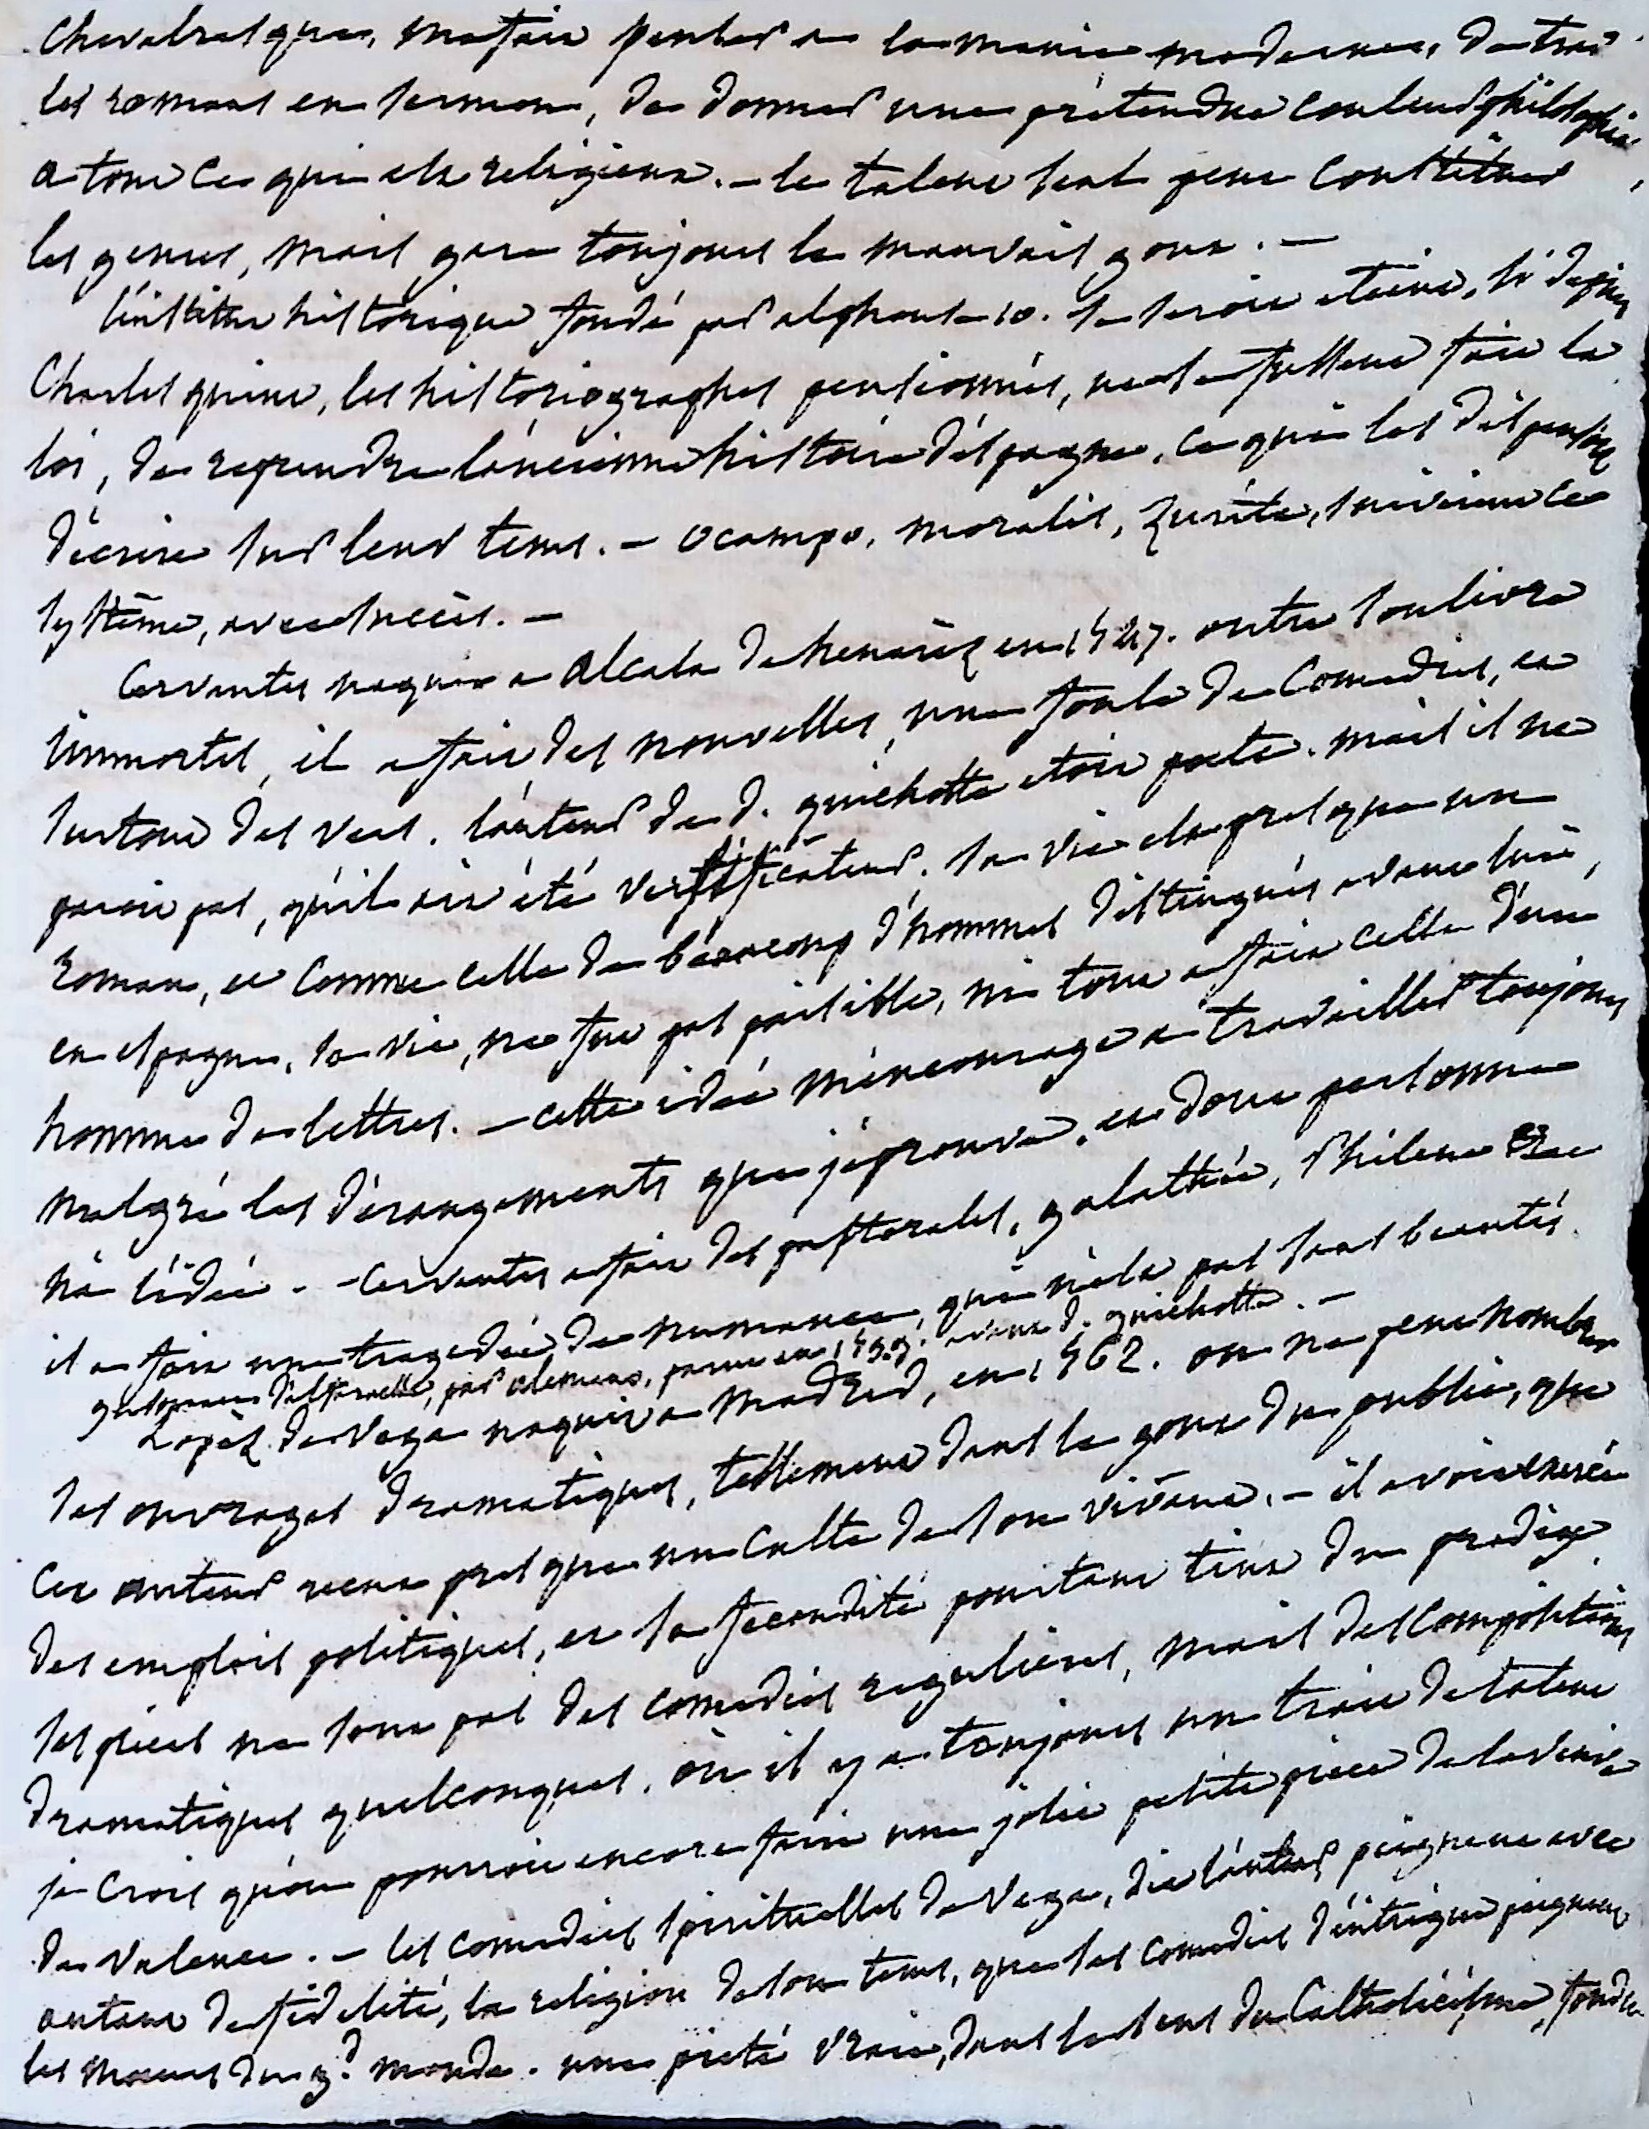 Chevalresques, me fait penser a la manie moderne, de tour
les romans en sermons, de donner une prétendue couleur philosophi
a tout ce qui est religieux. – le talent seul peut constituer
les genres, mais gare toujours le mauvais gout. –
l'institut historique fondé par alphonse 10. se seroit eteint, si depuis
Charles quint, les historiographes pensionnés, ne se fussent fait la
loi, de reprendre l'ancienne histoire d'espagne, ce qui les dispensoit
d'écrire sur leur tems. – Ocampo, moralis, Zurita, suivirent ce
système, avec succès. –
Cervantes naquit a Alcala de henarèz en 1547. outre son livre
immortel, il a fait des nouvelles, une foule de Comedies, et
surtout des vers. l'auteur de d. quichotte etoit poete. mais il ne
paroit pas, qu'il ait été versificateur. sa vie est presque un
roman, et comme celle de beaucoup d'hommes distingués avant lui,
en espagne, sa vie, ne fut pas paisible, ni tout a fait celle d'un
homme de lettres. – cette idée m'encourage a travailler toujours
malgré les dérangements que j'éprouve, et dont personne
n'a l'idée. – Cervantes a fait des pastorales, galathée, Philene &c
il a fait une tragedie de numance, qui n'est pas sans beautés.
gusman d'alfarache, par aleman, parut en 1599. avant d. quichotte. –
Lopèz de Vega naquit a Madrid, en 1562. on ne peut nombrer
ses ouvrages dramatiques, tellement dans le gout du public, que
cet auteur recut presque un culte de son vivant. – il avoit exercé
des emplois politiques, et sa fecondité pourtant tint du prodige
ses pieces ne sont pas des comedies regulieres, mais des compositions
dramatiques quelconques, où il y a toujours un trait de talent
je crois qu'on pourroit encore faire une jolie petite piece de la veuve
de Valence. – les comedies spirituelles de Vega, dit l'auteur, peignent avec
autant de fidelité, la religion de son tems, que ses comedies d'intrigue peignent
les moeurs du gd. monde. une pieté vraie, dans le sens du Catholicisme, fondue